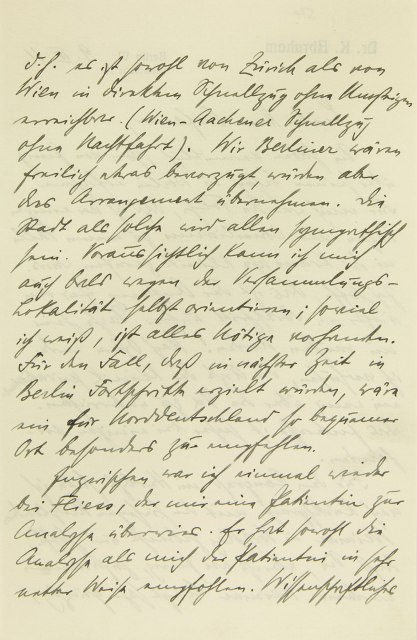 d. h. es ist sowohl von Zürich als von
Wien in direktem Schnellzug ohne Umsteigen
erreichbar. (Wien-Aachener Schnellzug
ohne Nachtfahrt). Wir Berliner wären
freilich etwas bevorzugt, würden aber
das Arrangement übernehmen. Die
Stadt als solche wird allen sympathisch
sein. Voraussichtlich kann ich mich
auch bald wegen der Versammlungs-
Lokalität selbst orientieren; soviel
ich weiß, ist alles Nötige vorhanden.
Für den Fall, daß in nächster Zeit in
Berlin Fortschritte erzielt würden, wäre
ein für Norddeutschland so bequemer
Ort besonders zu empfehlen.
Inzwischen war ich einmal wieder
bei Fliess, der mir eine Patientin zur
Analyse überwies. Er hat sowohl die
Analyse als mich der Patientin in sehr
netter Weise empfohlen. Wissenschaftliches